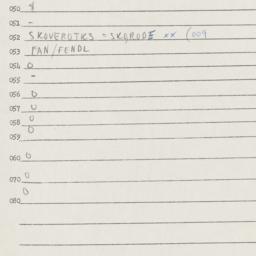 050 8
051 -
052 SKOVEROTKS = SKORODE xx (009
053 PAN/FENDL
054 0
055 -
056 0
057 0
058 0
059 0
060 0
070 0
0
080